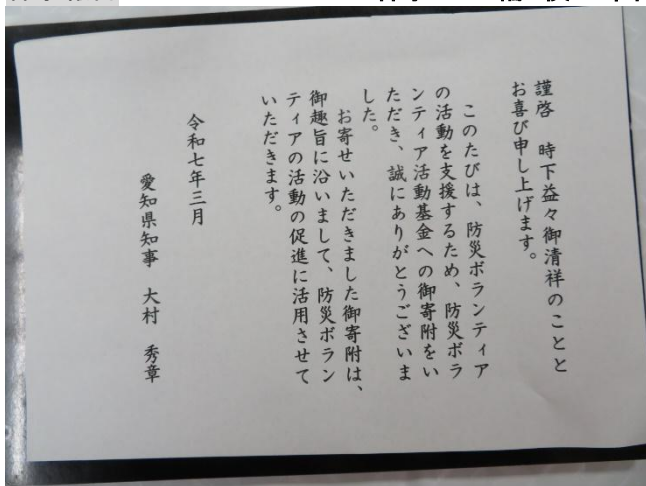 謹啓　時下益々御清祥のことと
お喜び申し上げます。
このたびは、防災ボランティア
の活動を支援するため、防災ボラ
ンティア活動基金への御寄附をい
ただき、誠にありがとうございま
した。
お寄せいただきました御寄附は、
御趣旨に沿いまして、防災ボラン
ティアの活動の促進に活用させて
いただきます。
令和七年三月
愛知県知事　大村　秀章